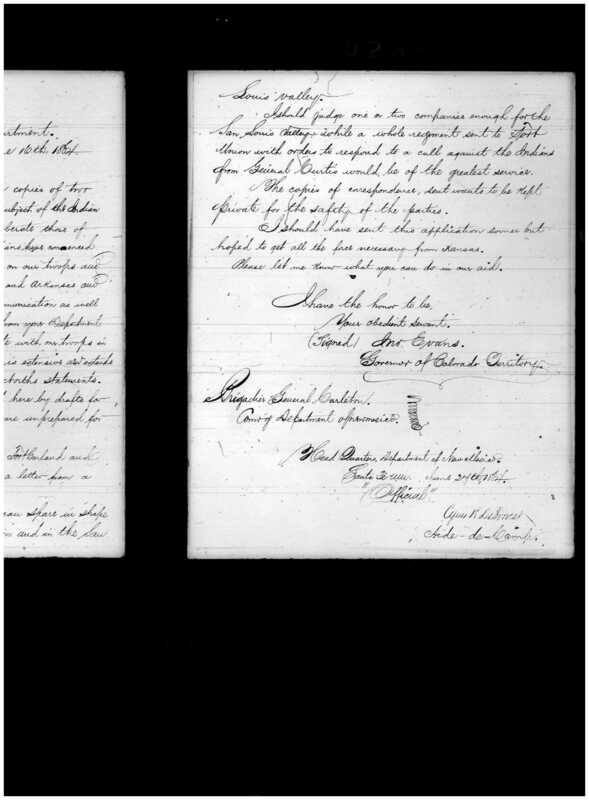 artment.
e 16th 1864.
copies of two
subject of the Indian
liberate those of
commenced
on our troops and
and Arkansas our
munication as well
from your Department
te with our troops in
is extensive and extends
Norths statements.
here by drafts for
are unprepared for
Fort Garland and
a letter from a
can spare in shape
and in the San
Louis valley.
I should judge one or two companies enough for the
San Louis Valley, while a whole regiment sent to Fort
Union with orders to respond to a call against the Indians
from General Curtis would be of the greatest service.
The copies of correspondence, sent wants to be kept
private for the safety of the parties.
I should have sent this application sooner but
hoped to get all the force necessary from Kansas.
Please let me know what you can do in our aid.
I have the honor to be,
Your obedient servant.
(Signed) Jno. Evans.
Governor of Colorado Territory.
Brigadier General Carleton.
Comd'g Department of New Mexico.
Head Quarters, Department of New Mexico.
Santa Fe June 1864.
"Official"
Cyrus
Aide-de-Camp.